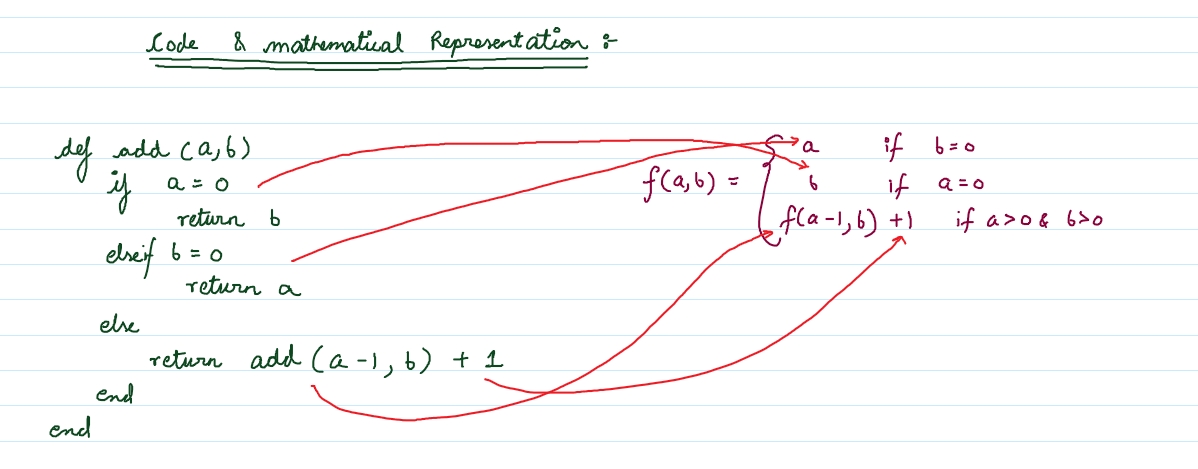 Code & mathematical Representation :-
def add (a,b)
if a = 0
return b
elseif b = 0
return a
else
return add (a-1, b) + 1
end
end
f(a,b) = {
a if b=0
b if a=0
f(a-1,b) +1 if a>0 & b>0